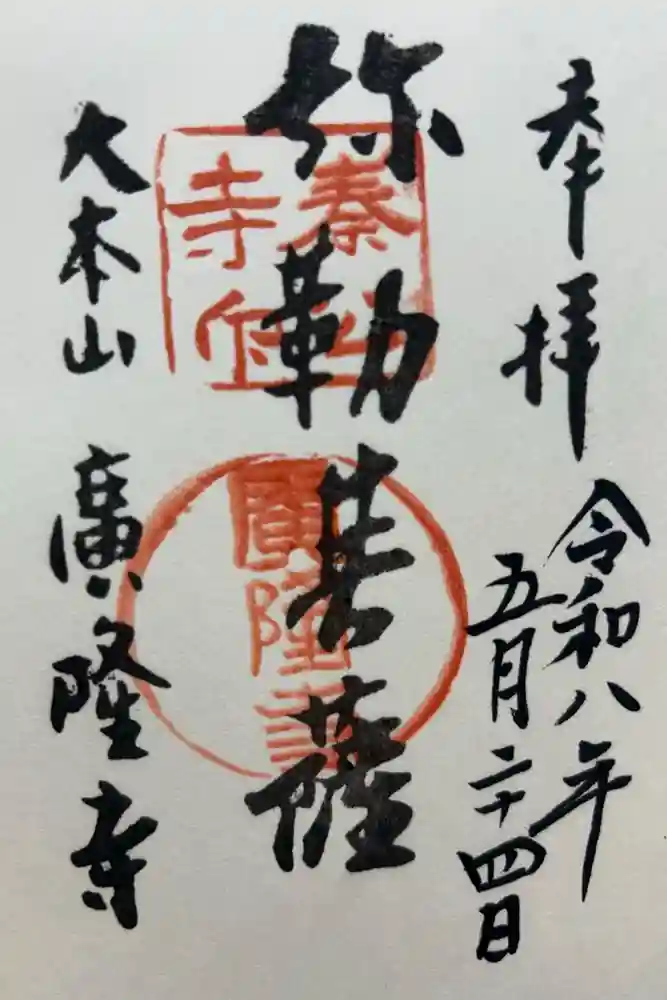 奉拝
令和八年
五月二十四日
弥勒菩薩
大本山 廣隆寺
秦公
寺
廣隆寺